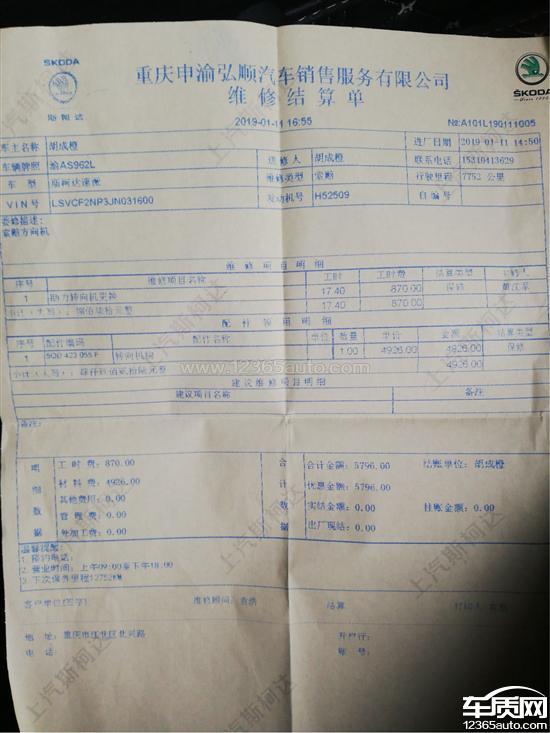 ŠKODA
斯柯达
重庆申渝弘顺汽车销售服务有限公司
维修结算单
ŠKODA
Since 1895
2019-01-11 16:55
№:A101L190111005
车主名称 胡成橙 进厂日期 2019-01-11 14:50
车辆牌照 渝AS962L 送修人 胡成橙 联系电话 15310413629
车 型 斯柯达速派 维修类型 索赔 行驶里程 7752 公里
VIN号 LSVCF2NP3JN031600 发动机号 H52509 自编号
报修描述:
索赔方向机
维修项目明细
序号 维修项目名称 工时 工时费 结算类型 主修人
1 助力转向机更换 17.40 870.00 保修
小计(大写):捌佰柒拾元整 17.40 870.00
配件领用明细
序号 配件编码 配件名称 单位 数量 单价 金额 结算类型
1 5QD 423 055 F 转向机构 1.00 4926.00 4926.00 保修
小计(大写):肆仟玖佰贰拾陆元整 4926.00
建议维修项目明细
建议项目名称 备注
备注:
明细数据
工 时 费:870.00
材 料 费:4926.00
其他费用:0.00
管 理 费:0.00
外加工费:0.00
合计数据
合计金额:5796.00 结账单位:胡成橙
优惠金额:5796.00
实结金额:0.00 挂账金额:0.00
出厂现结:0.00
温馨提醒:
1. 预约电话:
2. 营业时间:上午09:00至下午18:00
3. 下次保养里程12752KM
客户单位(签字) 维修顾问: 结算 打印人
地 址: 重庆市江北区北兴路 开户行:
电 话: 账 号:
www.12365auto.com
上汽斯柯达
车质网
12365auto.com